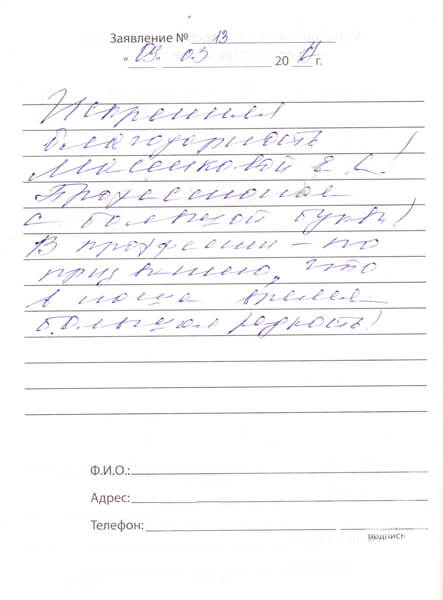 Заявление № 13
"09" 03 2017 г.
Искренняя
благодарность
Масенковой Е. С.!
Профессионал
с большой буквы!
В профессии – по
призванию, что
в наше время
большая редкость!
Ф.И.О.:
Адрес:
Телефон:
подпись